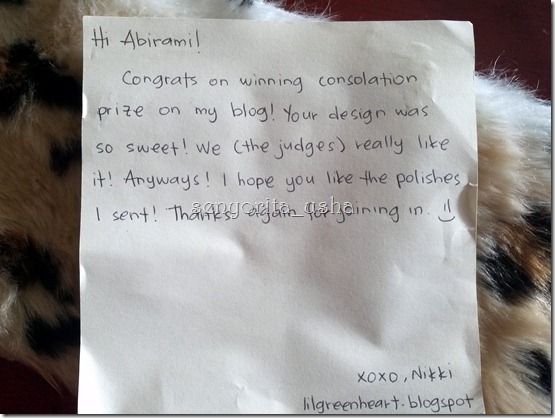 Hi Abirami!
Congrats on winning consolation
prize on my blog! Your design was
so sweet! We (the judges) really like
it! Anyways! I hope you like the polishes
I sent! Thanks again for joining in. :)
senyorita_usha
xoxo, Nikki
lilgreenheart.blogspot